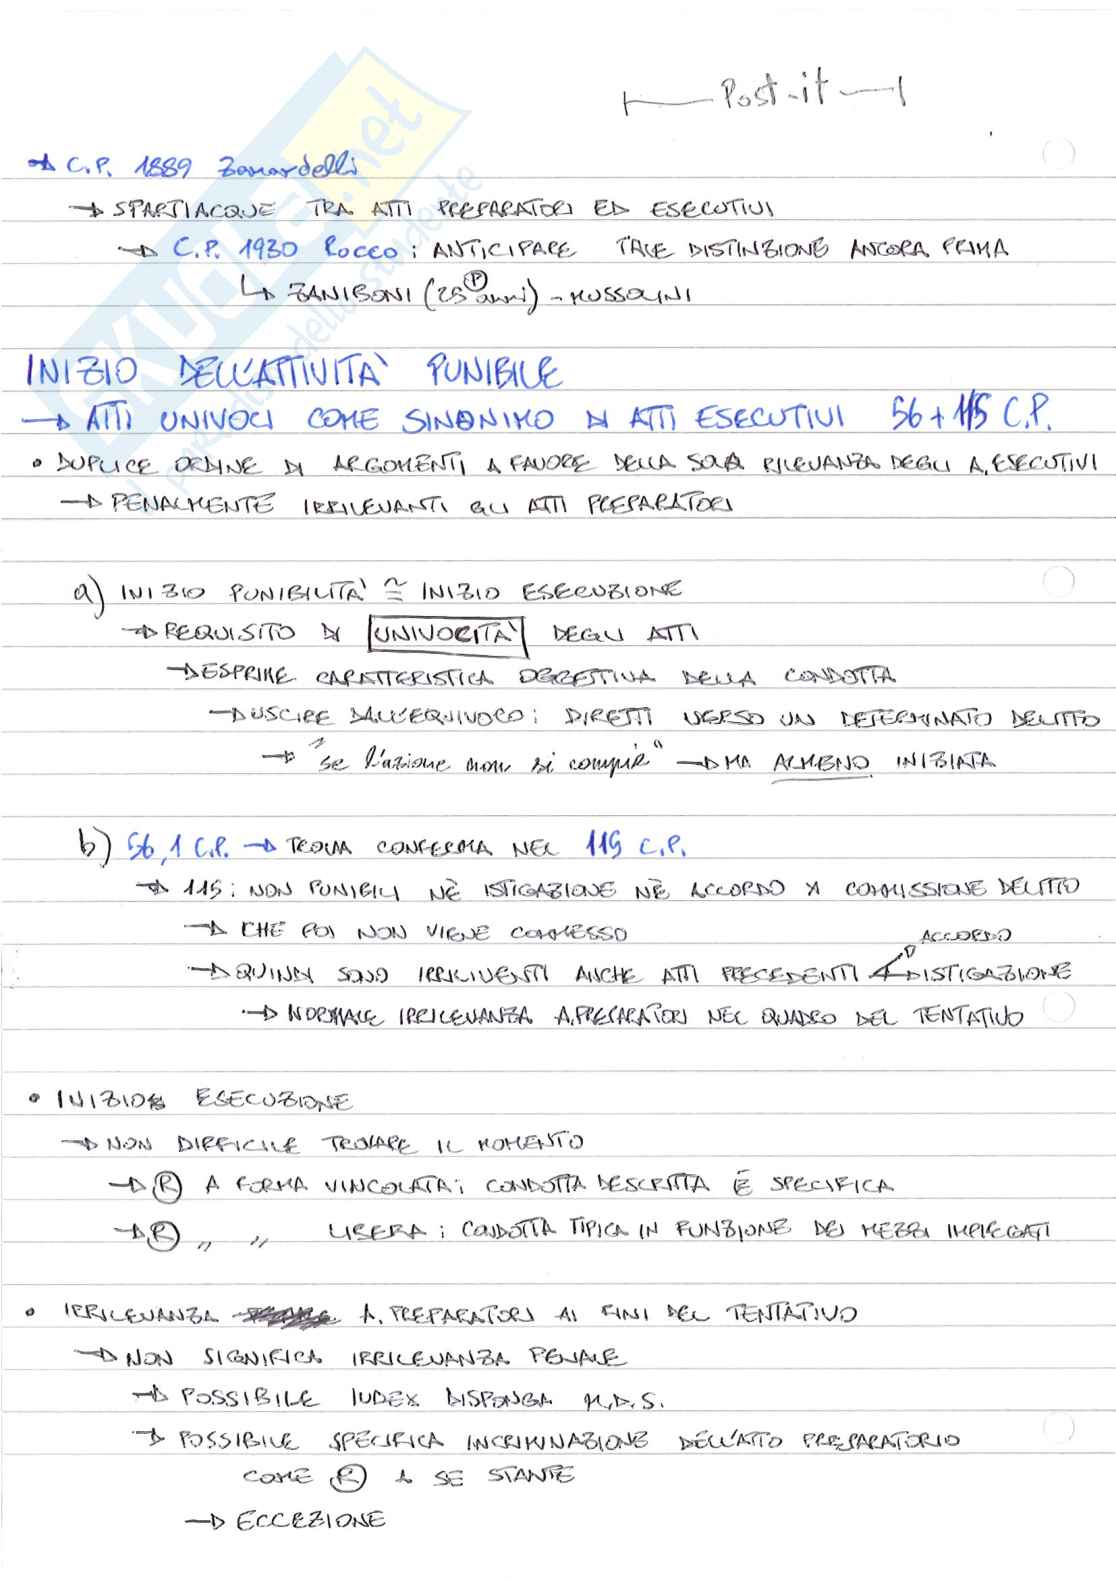 Post-it
→ C.P. 1889 Zanardelli
→ SPARTIACQUE TRA ATTI PREPARATORI ED ESECUTIVI
→ C.P. 1930 ROCCO: ANTICIPARE TALE DISTINZIONE ANCORA PRIMA
↳ ZANIBONI (25 anni) - MUSSOLINI
INIZIO DELL'ATTIVITA' PUNIBILE
→ ATTI UNIVOCI COME SINONIMO DI ATTI ESECUTIVI 56 + 115 C.P.
• DUPLICE ORDINE DI ARGOMENTI A FAVORE DELLA SOLA RILEVANZA DEGLI A. ESECUTIVI
→ PENALMENTE IRRILEVANTI GLI ATTI PREPARATORI
a) INIZIO PUNIBILITA' ≅ INIZIO ESECUZIONE
→ REQUISITO DI UNIVOCITA' DEGLI ATTI
→ ESPRIME CARATTERISTICA OGGETTIVA DELLA CONDOTTA
→ USCIRE DALL'EQUIVOCO: DIRETTI VERSO UN DETERMINATO DELITTO
→ "se l'azione non si compie" → MA ALMENO INIZIATA
b) 56,1 C.P. → TROVA CONFERMA NEL 115 C.P.
→ 115: NON PUNIBILI NÈ ISTIGAZIONE NÈ ACCORDO X COMMISSIONE DELITTO
→ CHE POI NON VIENE COMMESSO
ACCORDO
→ QUINDI SONO IRRILIVENTI ANCHE ATTI PRECEDENTI → ISTIGAZIONE
→ NORMALE IRRILEVANZA A. PREPARATORI NEL QUADRO DEL TENTATIVO
• INIZIO ESECUZIONE
→ NON DIFFICILE TROVARE IL MOMENTO
→ R A FORMA VINCOLATA: CONDOTTA DESCRITTA È SPECIFICA
→ R " " LIBERA: CONDOTTA TIPICA IN FUNZIONE DEI MEZZI IMPIEGATI
• IRRILEVANZA A. PREPARATORI AI FINI DEL TENTATIVO
→ NON SIGNIFICA IRRILEVANZA PENALE
→ POSSIBILE IUDEX DISPONGA M.D.S.
→ POSSIBILE SPECIFICA INCRIMINAZIONE DELL'ATTO PREPARATORIO
COME R A SE STANTE
→ ECCEZIONE